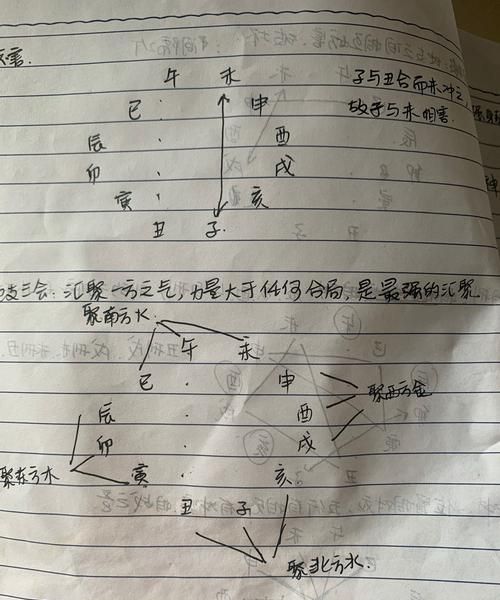 害.
午 未 子与丑合而未冲之,
巳 申 故子与未相害.
辰 酉
卯 戌
寅 亥
丑 子
支三会:汇聚一方之气,力量大于任何合局,是最强的汇聚.
聚南方水.
午 未
巳 申
聚西方金
辰 酉
卯 戌
聚东方木 寅 亥
丑 子
聚北方水.